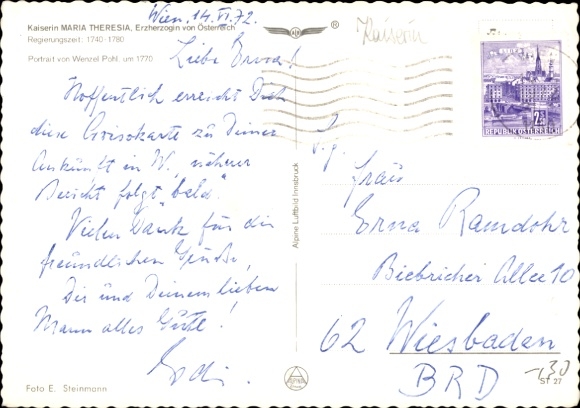 Wien, 14.VI.72.
Kaiserin MARIA THERESIA, Erzherzogin von Österreich
Regierungszeit: 1740-1780
Portrait von Wenzel Pohl, um 1770
Liebe Erna!
Hoffentlich erreicht Dich
diese Grusskarte zu Deiner
Ankunft in W., näherer
Bericht folgt "bald".
Vielen Dank für die
freundlichen Grüße,
Dir und Deinem lieben
Mann alles Gute!
Foto E. Steinmann
Alpine Luftbild Innsbruck
®
Kaiserin
2.-
REPUBLIK ÖSTERREICH
Frau
Erna Ramdohr
Biebricher Allee 10
62 Wiesbaden
BRD
-,30
ST 27